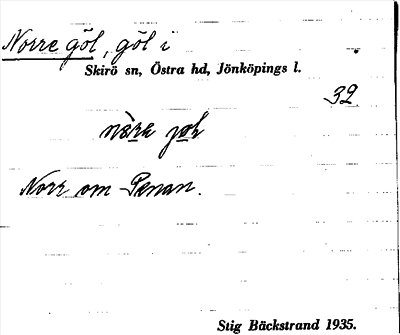 Norre göl, göl i
Skirö sn, Östra hd, Jönköpings l.
32
Norr om Penan.
Stig Bäckstrand 1935.